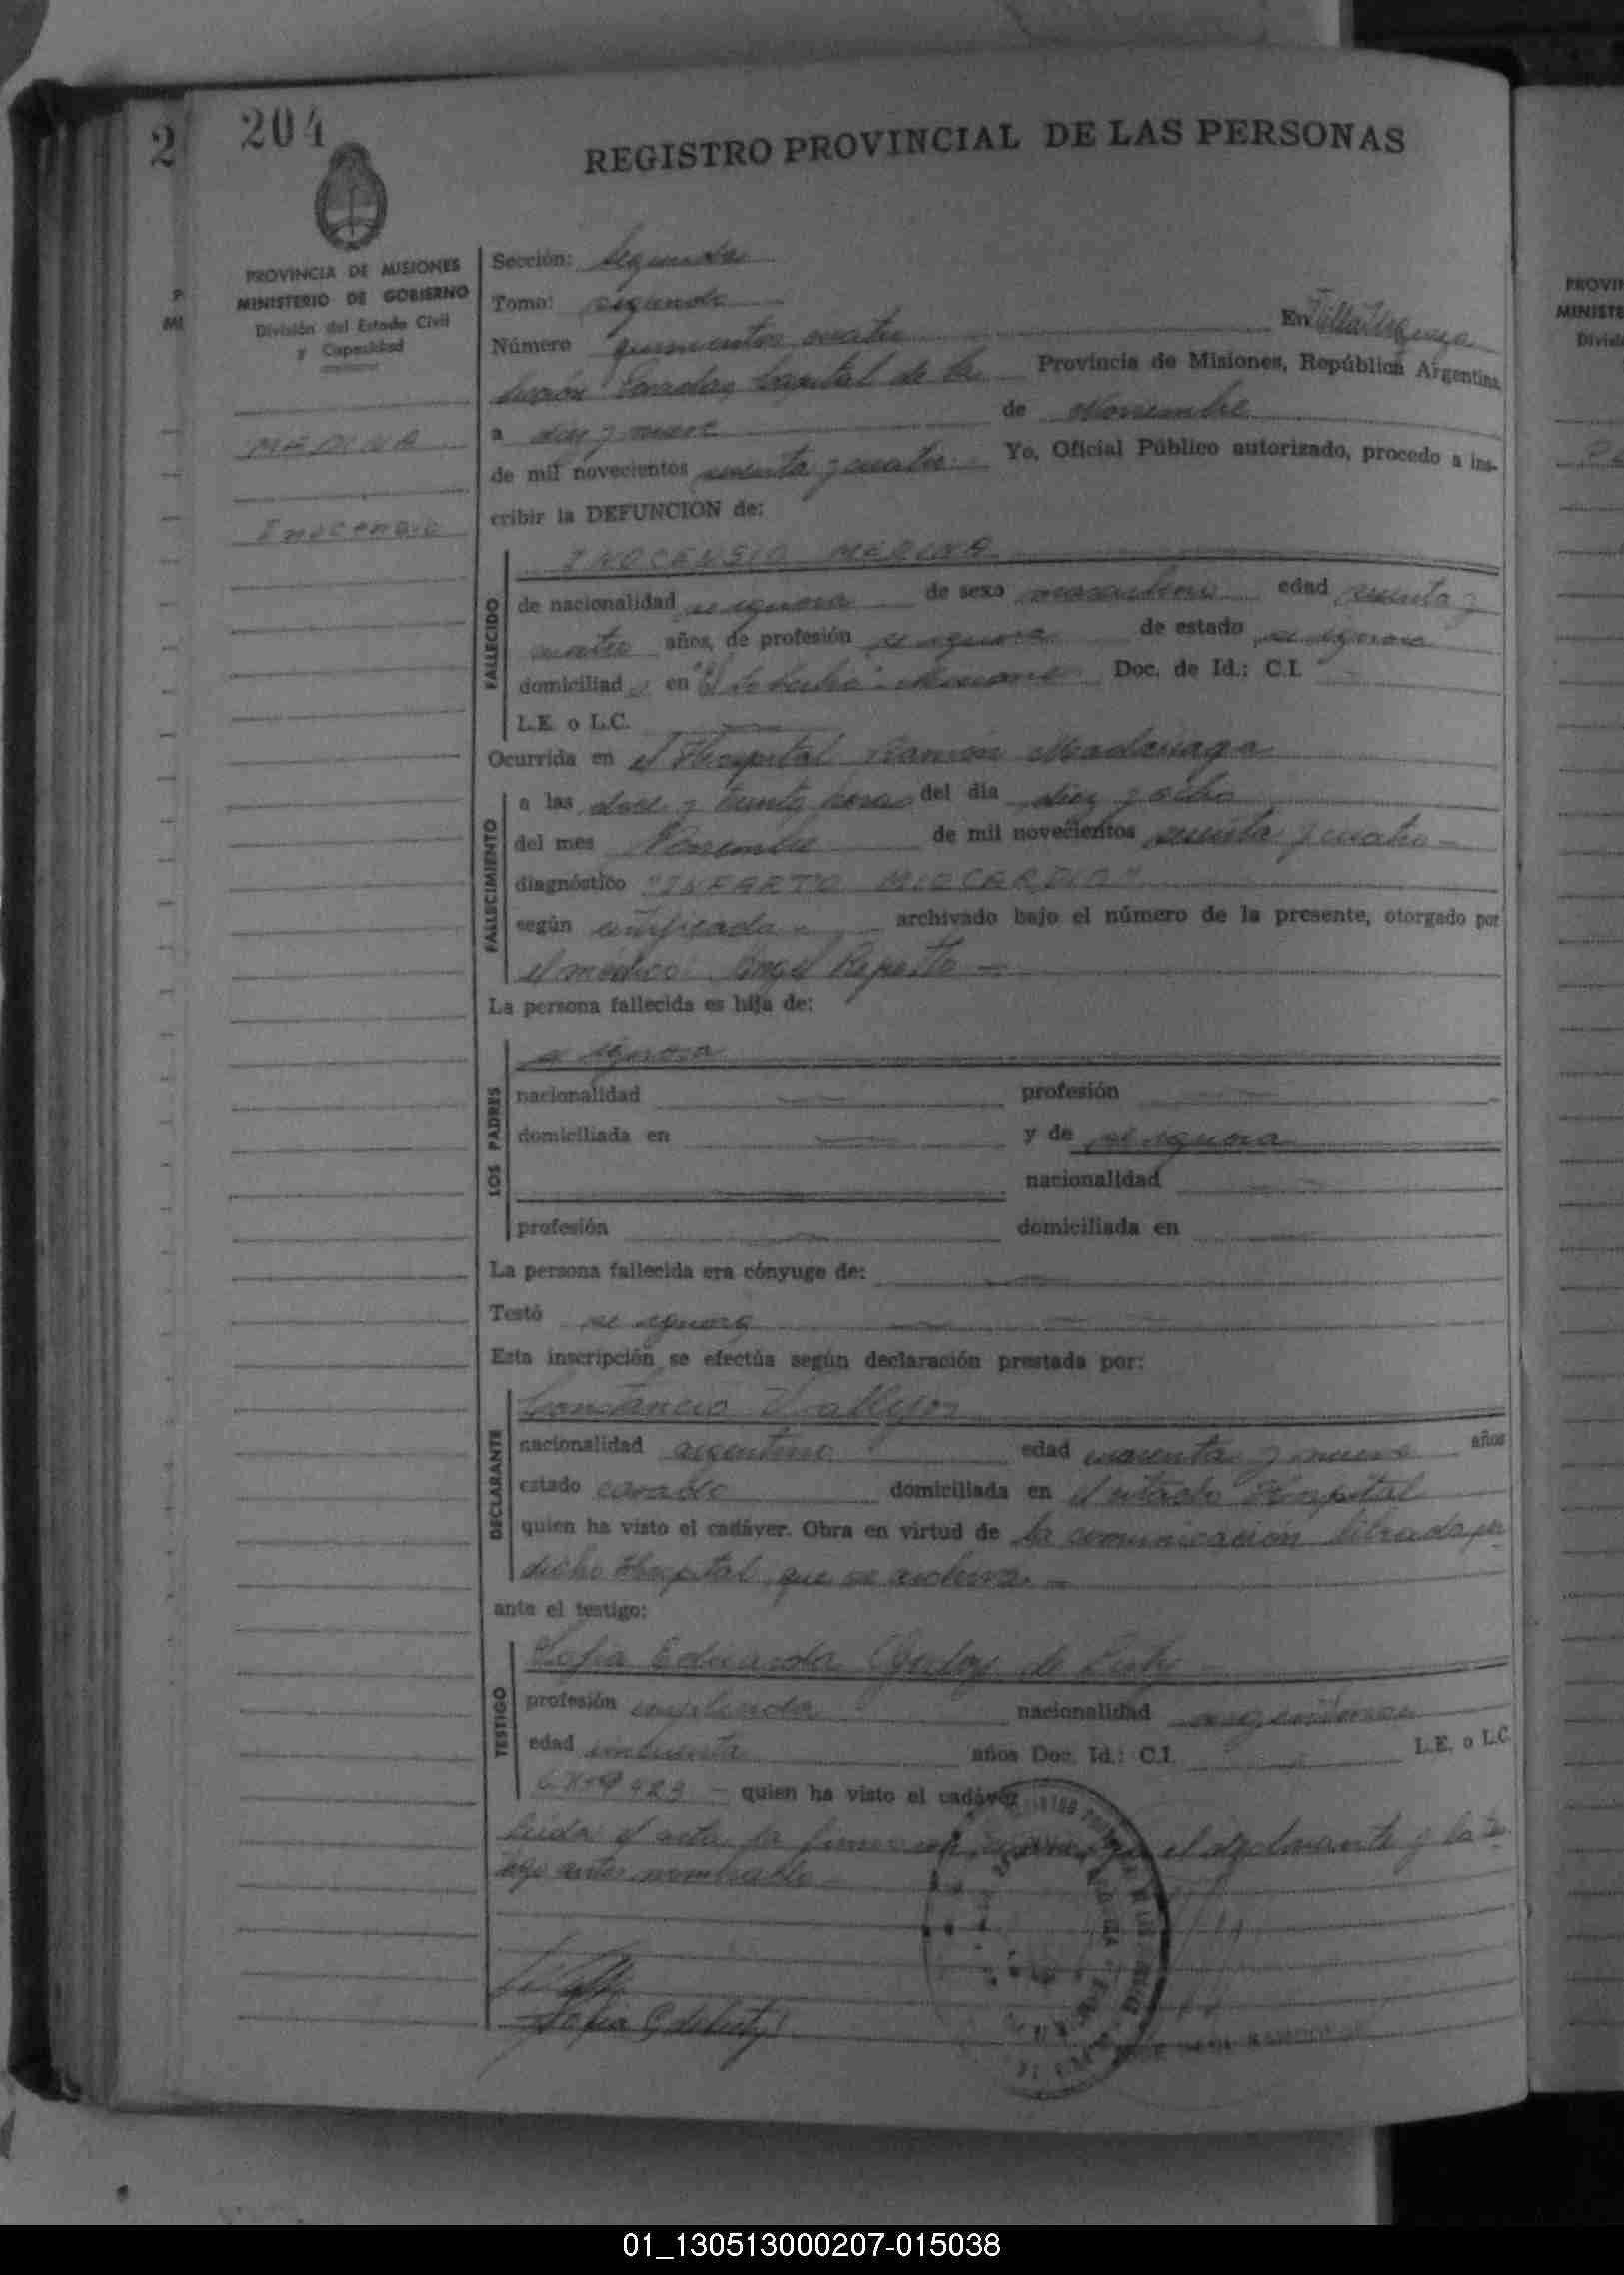 2 204
REGISTRO PROVINCIAL DE LAS PERSONAS
PROVINCIA DE MISIONES
MINISTERIO DE GOBIERNO
División del Estado Civil
y Capacidad
MEDINA
Inocensio
Sección: Segunda
Tomo: segundo
Número quinientos cuatro En Villa Urquiza
Posadas, Capital de la Provincia de Misiones, República Argentina,
a diez y nueve de Noviembre
de mil novecientos setenta y cuatro. Yo, Oficial Público autorizado, procedo a ins-
cribir la DEFUNCION de:
FALLECIDO
INOCENSIO MEDINA
de nacionalidad se ignora de sexo masculino edad
cuatro años, de profesión se ignora de estado se ignora
domiciliado en Doc. de Id.: C.I.
L.E. o L.C.
Ocurrida en el Hospital Ramón Madariaga
FALLECIMIENTO
a las doce y treinta horas del día diez y ocho
del mes Noviembre de mil novecientos setenta y cuatro
diagnóstico "INFARTO MIOCARDIO"
según certificado archivado bajo el número de la presente, otorgado por
el médico: Angel Repetto
La persona fallecida es hija de:
LOS PADRES
se ignora
nacionalidad profesión
domiciliada en y de se ignora
nacionalidad
profesión domiciliada en
La persona fallecida era cónyuge de:
Testó se ignora
Esta inscripción se efectúa según declaración prestada por:
DECLARANTE
Constancio Vallejos
nacionalidad argentino edad cuarenta y nueve años
estado casado domiciliada en el citado Hospital
quien ha visto el cadáver. Obra en virtud de la comunicación librada por
dicho Hospital que se archiva.
ante el testigo:
TESTIGO
Sofia Eduarda Godoy de
profesión empleada nacionalidad argentina
edad cincuenta años Doc. Id.: C.I. L.E. o L.C.
quien ha visto el cadáver
Leída el acta la firman el declarante y la tes-
tigo antes nombrado
Sofia G de
PROVIN
MINISTE
Divisió
01_130513000207-015038